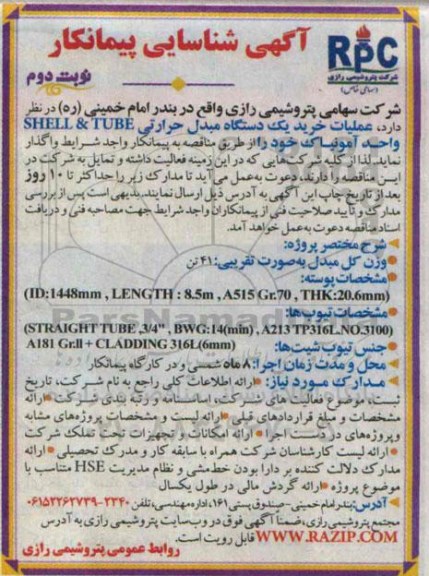 آگهی شناسایی پیمانکار
نوبت دوم
RPC
شرکت پتروشیمی رازی
(سهامی خاص)
شرکت سهامی پتروشیمی رازی واقع در بندر امام خمینی (ره) در نظر
دارد، عملیات خرید یک دستگاه مبدل حرارتی SHELL & TUBE
واحد آمونیاک خود را از طریق مناقصه به پیمانکار واجد شرایط واگذار
نماید. لذا از کلیه شرکت‌هایی که در این زمینه فعالیت داشته و تمایل به شرکت در
این مناقصه را دارند، دعوت به‌عمل می‌آید تا مدارک زیر را حداکثر تا ۱۰ روز
بعد از تاریخ چاپ این آگهی به آدرس ذیل ارسال نمایند. بدیهی است پس از بررسی
مدارک و تأیید صلاحیت فنی از پیمانکاران واجد شرایط جهت مصاحبه فنی و دریافت
اسناد مناقصه دعوت به‌عمل خواهد آمد.
شرح مختصر پروژه:
وزن کل مبدل به‌صورت تقریبی: ۴۱ تن
مشخصات پوسته:
(ID:1448mm , LENGTH : 8.5m , A515 Gr.70 , THK:20.6mm)
مشخصات تیوب‌ها:
(STRAIGHT TUBE ,3/4" , BWG:14(min) , A213 TP316L.NO.3100)
جنس تیوب شیت‌ها: A181 Gr.II + CLADDING 316L(6mm)
محل و مدت زمان اجرا: ۸ ماه شمسی و در کارگاه پیمانکار
مدارک مورد نیاز: * ارائه اطلاعات کلی راجع به نام شرکت، تاریخ
ثبت، موضوع فعالیت‌های شرکت، اساسنامه و رتبه بندی شرکت * ارائه
مشخصات و مبلغ قراردادهای قبلی * ارائه لیست و مشخصات پروژه‌های مشابه
و پروژه‌های در دست اجرا * ارائه امکانات و تجهیزات تحت تملک شرکت
* ارائه لیست کارشناسان شرکت همراه با سابقه کار و مدرک تحصیلی * ارائه
مدارک دلالت کننده بر دارا بودن خط‌مشی و نظام مدیریت HSE متناسب با
موضوع پروژه * ارائه گردش مالی در طول یکسال
آدرس: بندر امام خمینی - صندوق پستی ۱۶۱، اداره مهندسی، تلفن ۲۳۴۰-۰۶۱۵۲۲۶۲۷۳۹
مجتمع پتروشیمی رازی، ضمناً آگهی فوق در وب‌سایت پتروشیمی رازی به آدرس
WWW.RAZIP.COM قابل رویت است.
روابط عمومی پتروشیمی رازی